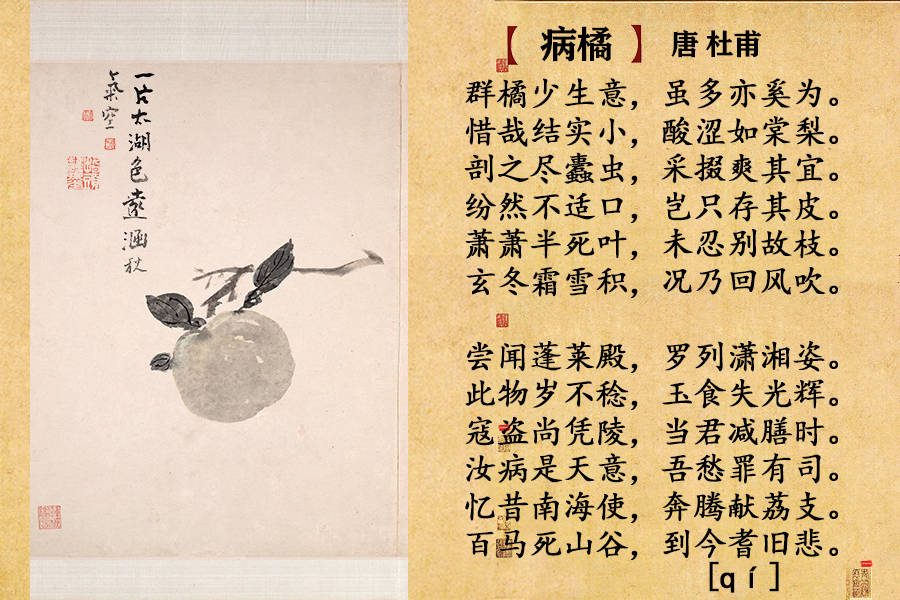 一片太湖色遠涵秋
氣空
【 病橘 】 唐 杜甫
群橘少生意，虽多亦奚为。
惜哉结实小，酸涩如棠梨。
剖之尽蠹虫，采掇爽其宜。
纷然不适口，岂只存其皮。
萧萧半死叶，未忍别故枝。
玄冬霜雪积，况乃回风吹。
尝闻蓬莱殿，罗列潇湘姿。
此物岁不稔，玉食失光辉。
寇盗尚凭陵，当君减膳时。
汝病是天意，吾愁罪有司。
忆昔南海使，奔腾献荔支。
百马死山谷，到今耆旧悲。
[qí]